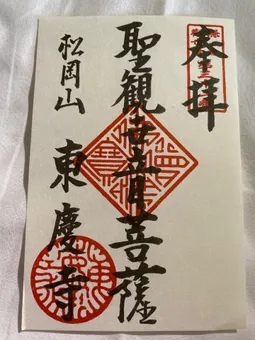 奉拝
聖観世音菩薩
松岡山 東慶寺